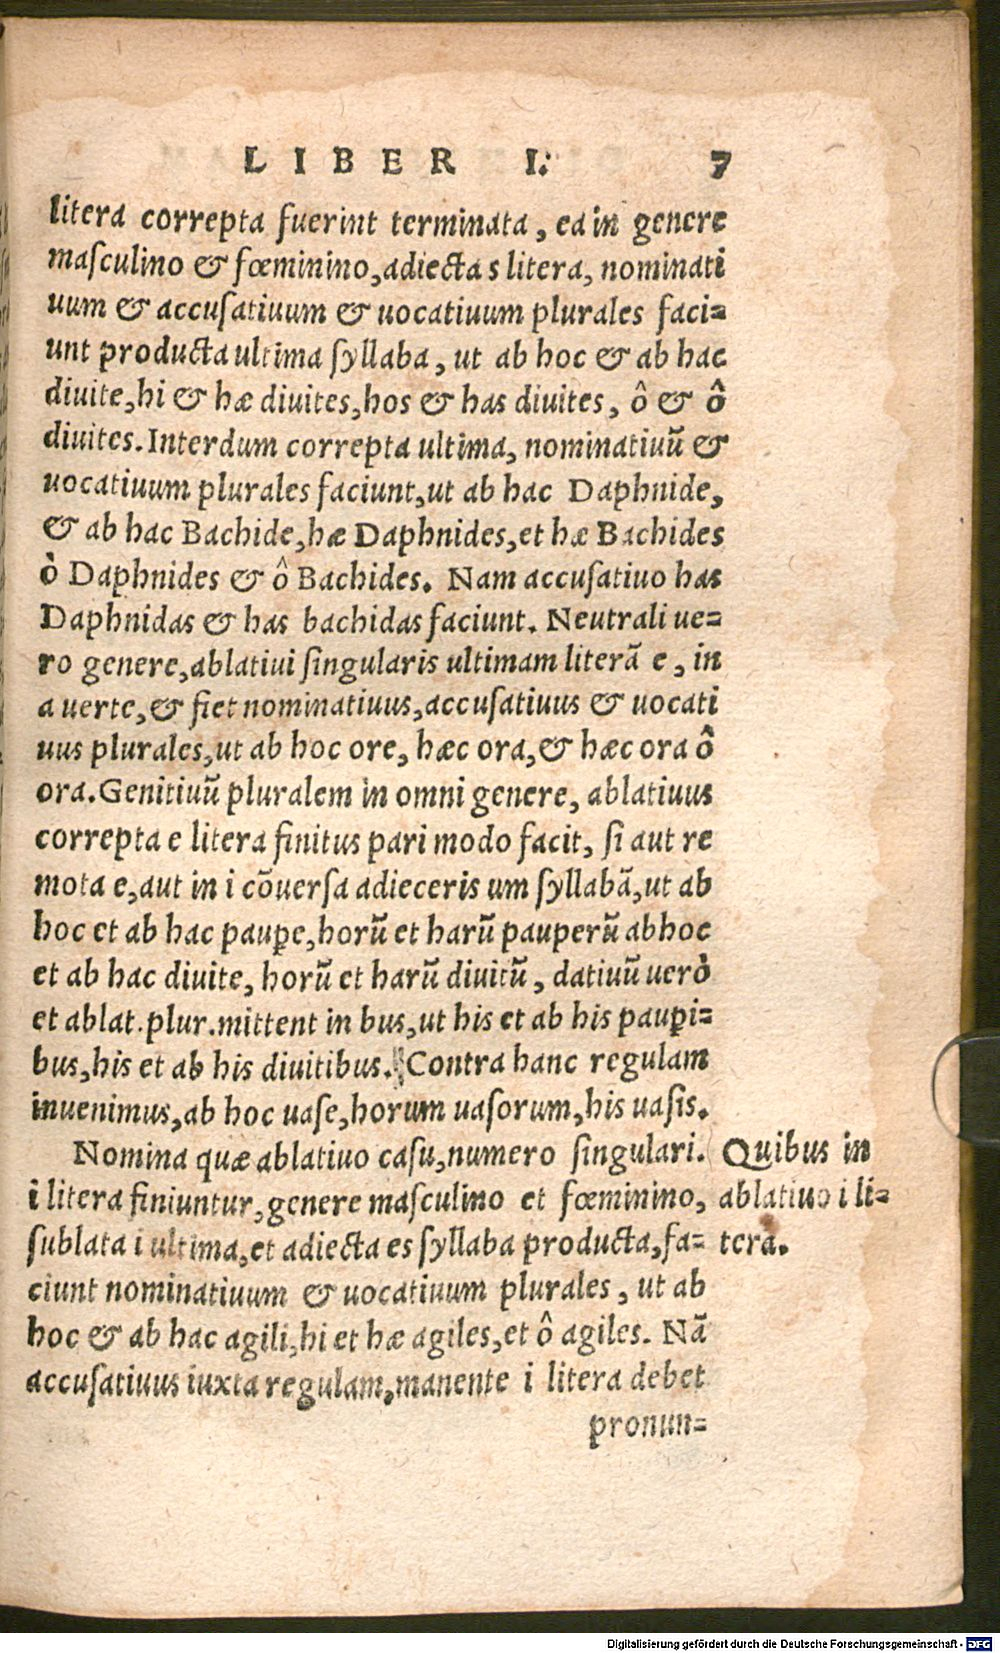 LIBER I. 7
litera correpta fuerint terminata, ea in genere
masculino & fœminino, adiecta s litera, nominati
uum & accusatiuum & uocatiuum plurales faci=
unt producta ultima syllaba, ut ab hoc & ab hac
diuite, hi & hæ diuites, hos & has diuites, ô & ô
diuites. Interdum correpta ultima, nominatiuū &
uocatiuum plurales faciunt, ut ab hac Daphnide,
& ab hac Bachide, hæ Daphnides, et hæ Bachides
ò Daphnides & ô Bachides. Nam accusatiuo has
Daphnidas & has bachidas faciunt. Neutrali ue=
ro genere, ablatiui singularis ultimam literā e, in
a uerte, & fiet nominatiuus, accusatiuus & uocati
uus plurales, ut ab hoc ore, hæc ora, & hæc ora ô
ora. Genitiuū pluralem in omni genere, ablatiuus
correpta e litera finitus pari modo facit, si aut re
mota e, aut in i cōuersa adieceris um syllabā, ut ab
hoc et ab hac paupe, horū et harū pauperū ab hoc
et ab hac diuite, horū et harū diuitū, datiuū uerò
et ablat. plur. mittent in bus, ut his et ab his paupi=
bus, his et ab his diuitibus. Contra hanc regulam
inuenimus, ab hoc uase, horum uasorum, his uasis.
Nomina quæ ablatiuo casu, numero singulari.
i litera finiuntur, genere masculino et fœminino,
sublata i ultima, et adiecta es syllaba producta, fa=
ciunt nominatiuum & uocatiuum plurales, ut ab
hoc & ab hac agili, hi et hæ agiles, et ô agiles. Nā
accusatiuus iuxta regulam, manente i litera debet
pronun=
Quibus in
ablatiuo i li=
tera.
Digitalisierung gefördert durch die Deutsche Forschungsgemeinschaft - DFG